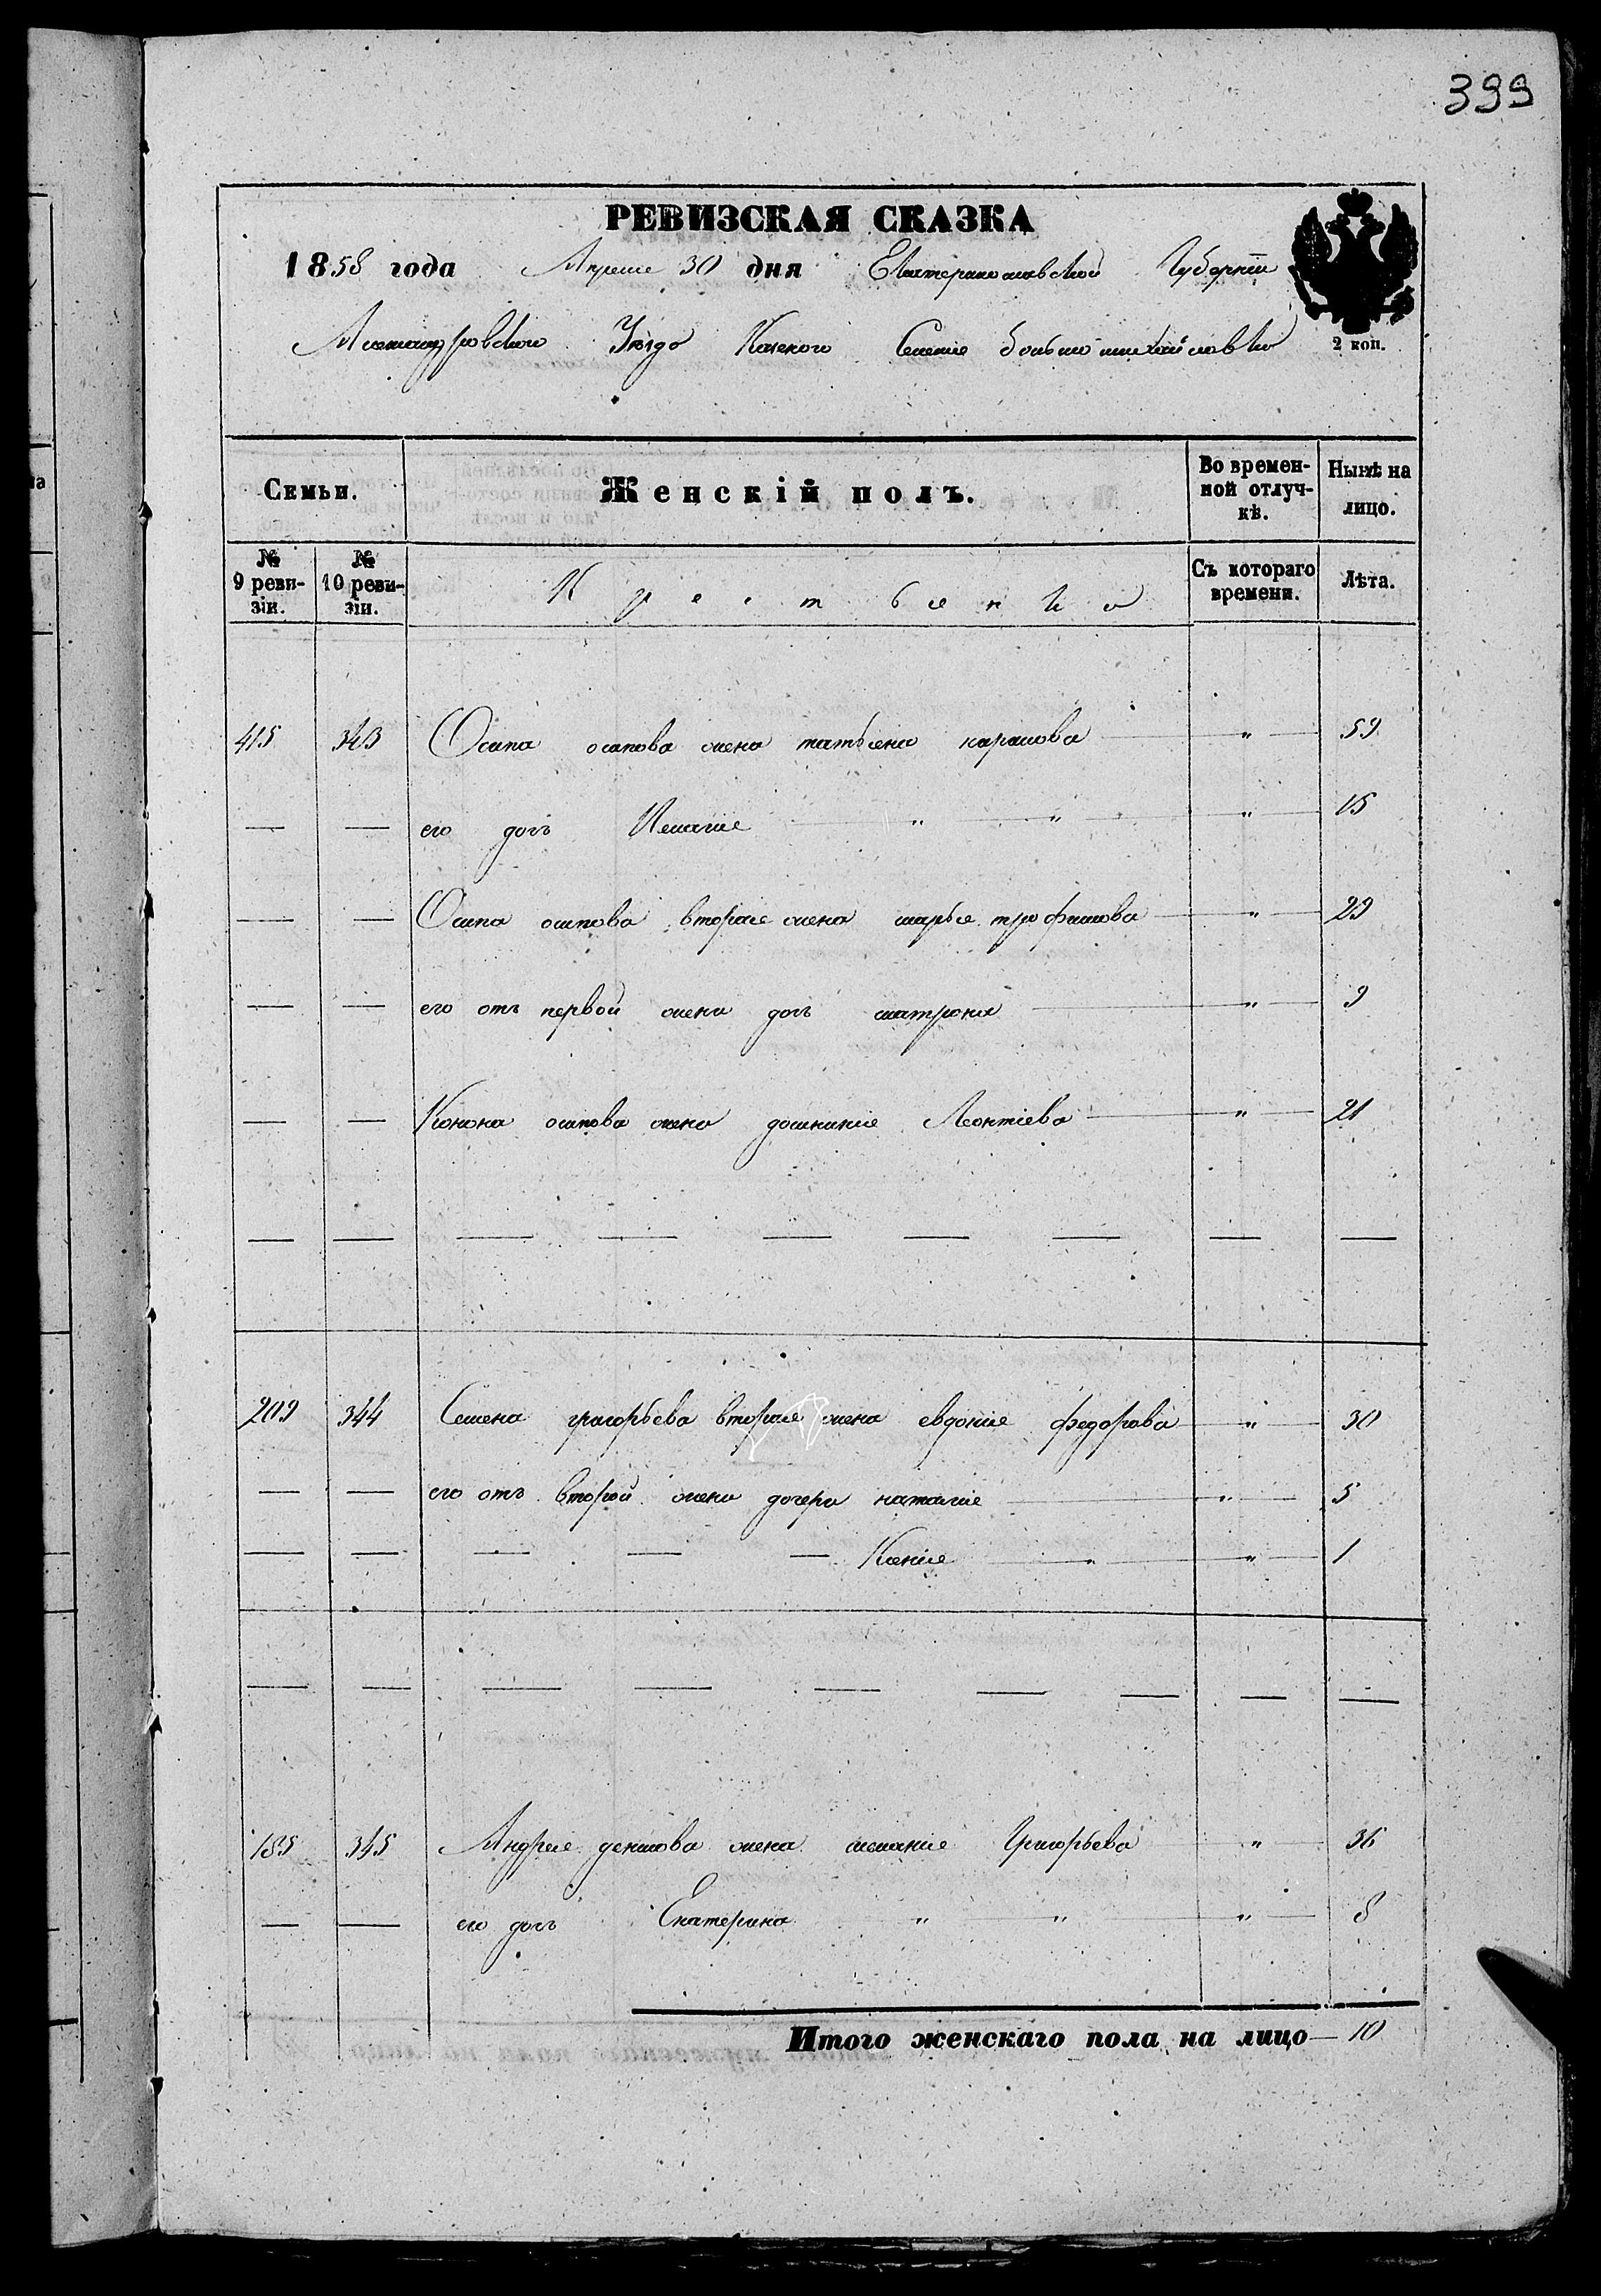 399
РЕВИЗСКАЯ СКАЗКА
1858 года Апреля 30 дня Екатеринославской Губерніи
Александровского Уезда Селения больше михайловки
2 коп.
Семьи. Женскій полъ. Во временной отлучкѣ. Нынѣ на лицо.
№ 9 ревизіи. № 10 ревизіи. Съ котораго времени. Лѣта.
415 343 Осипа осипова жена татьяна карпова " 59
— — его дочь Пелагия " " " 15
— — Осипа осипова вторая жена марья трофимова " 29
— — его отъ первой жены дочь матрона " 9
— — Конона осипова жена домникия Леонтіева " 21
— — — — — — — — —
209 344 Семена григорьева вторая жена евдокия федорова " 30
— — его отъ второй жены дочери наталия " 5
— — — — — Ксения " " 1
— — — — — — — — —
185 345 Андрея денисова жена мелания Григорьева " 36
— — его дочь Екатерина " " " 8
Итого женскаго пола на лицо — 10